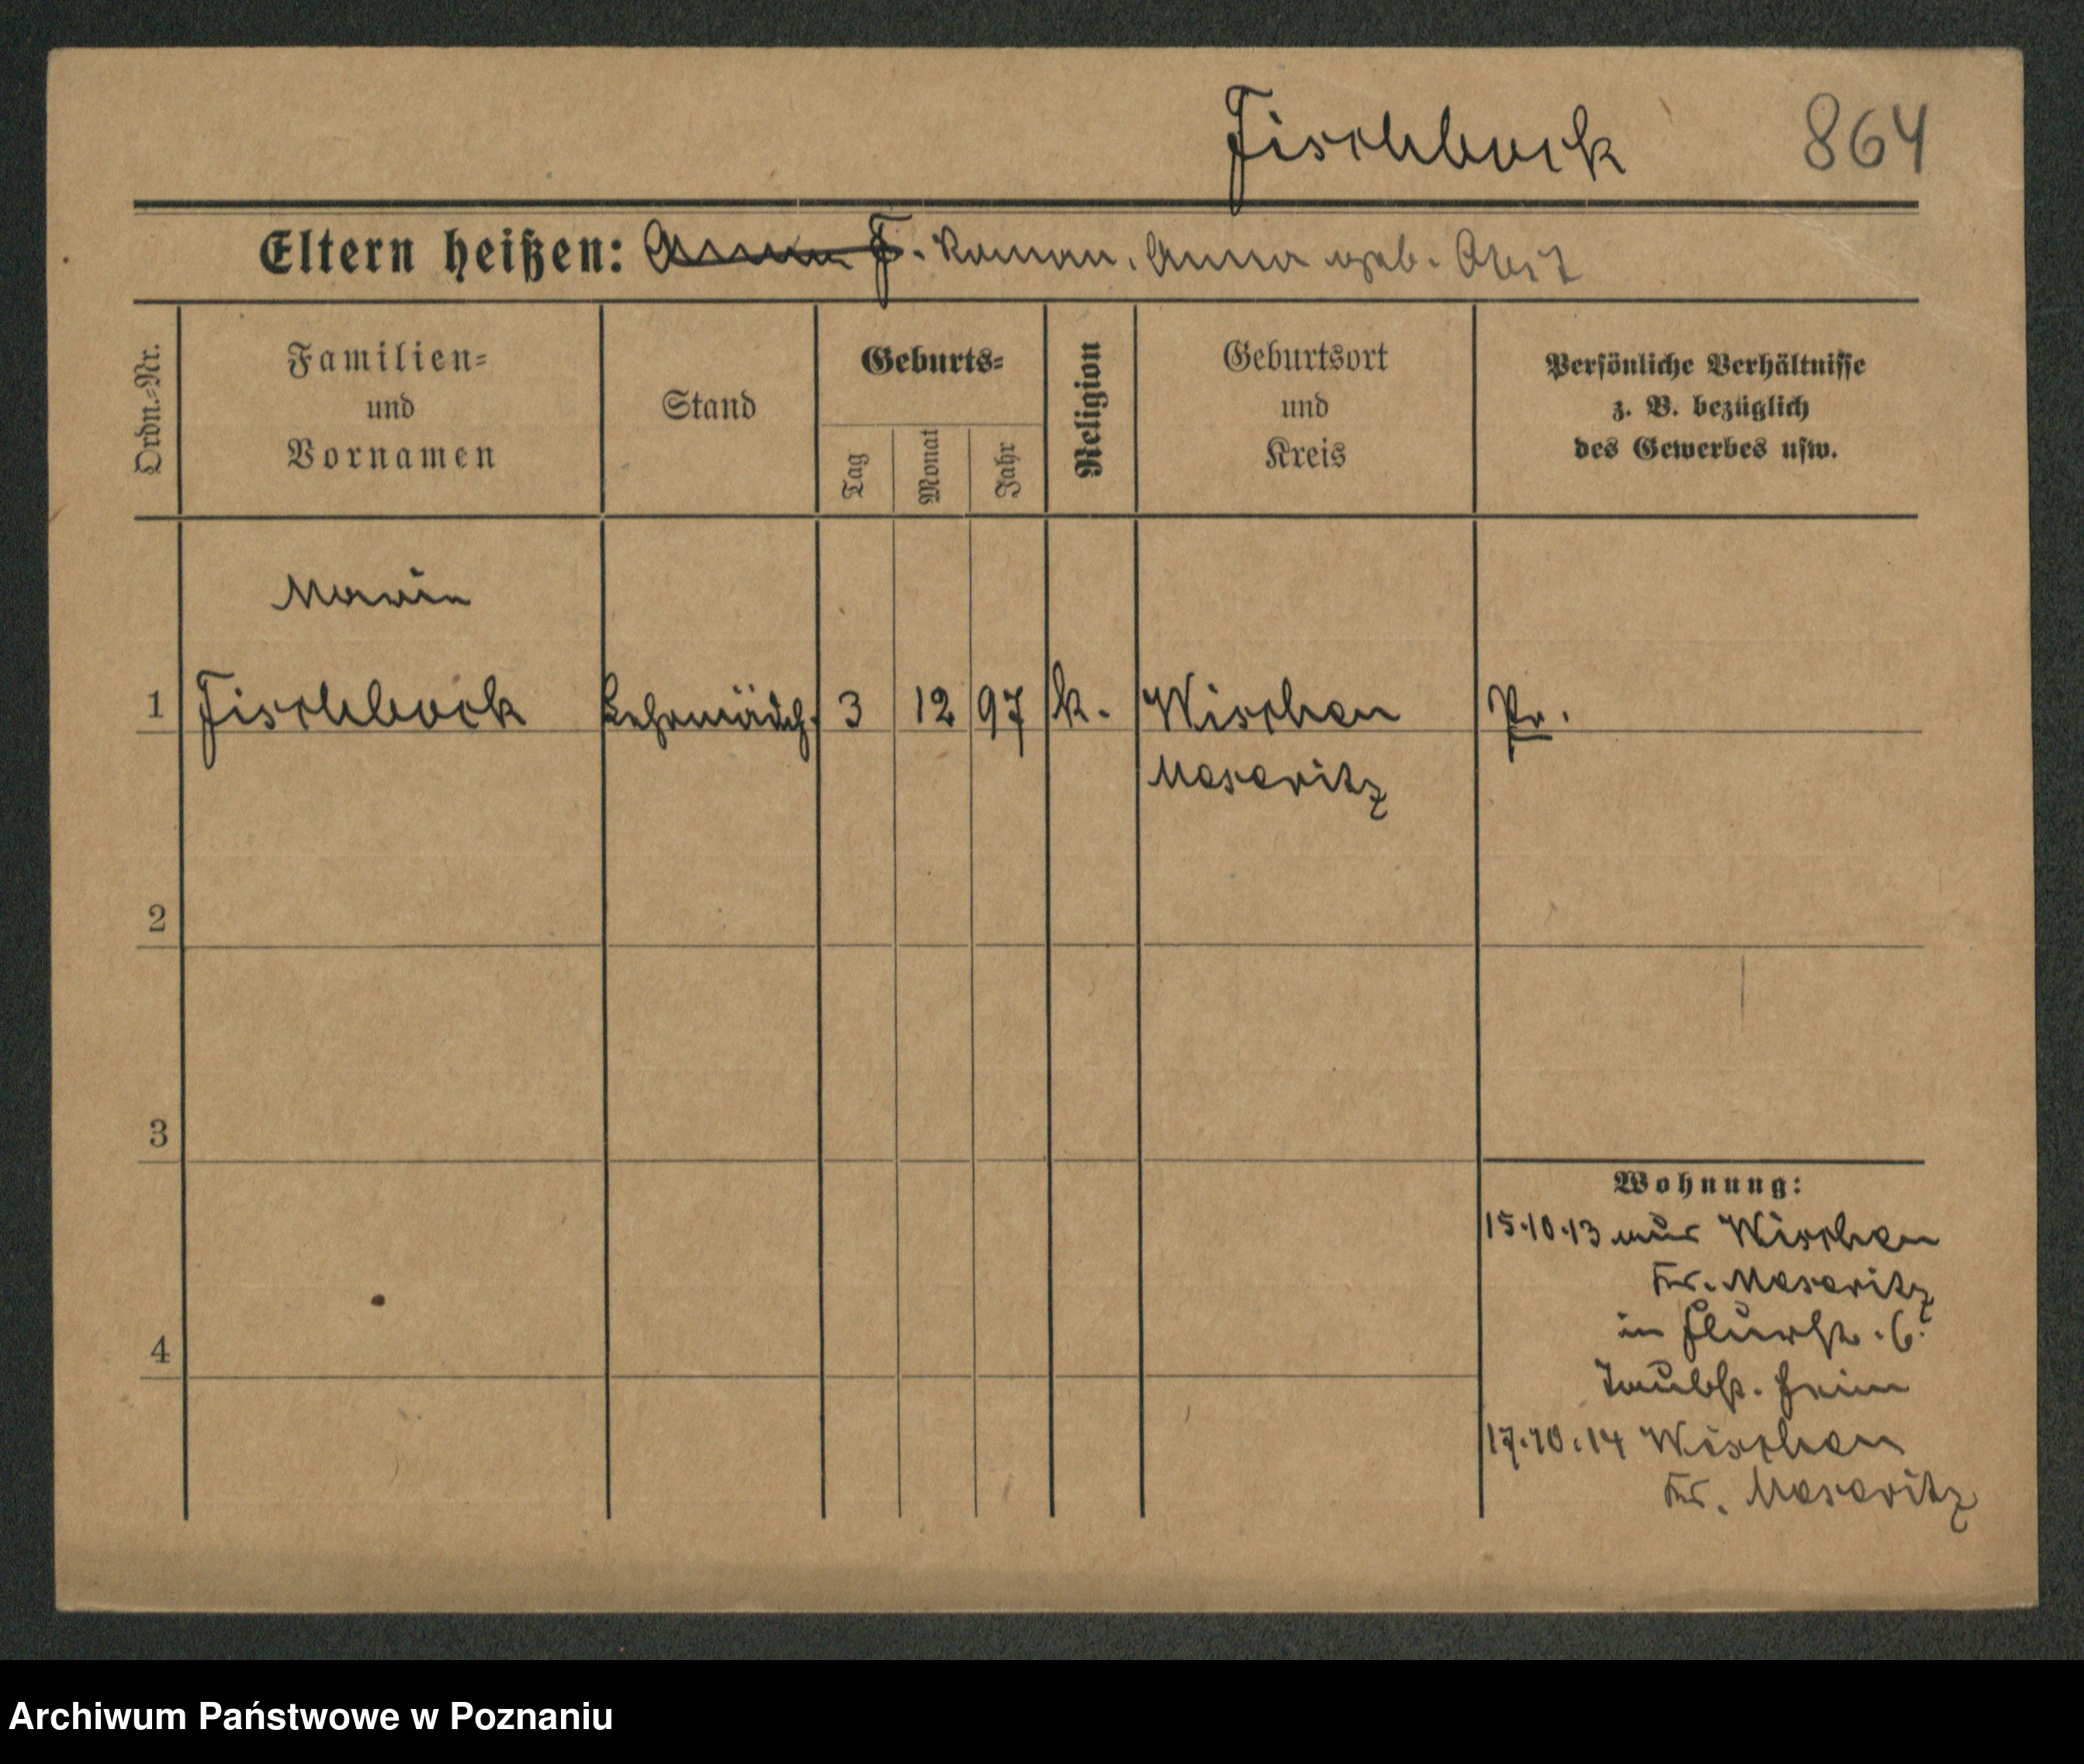 Fischbock 864
Eltern heißen: Anna F. Roman, Anna geb.
Ordn.=Nr.
Familien=
und
Vornamen
Stand
Geburts=
Tag
Monat
Jahr
Religion
Geburtsort
und
Kreis
Persönliche Verhältnisse
z. B. bezüglich
des Gewerbes usw.
Maria
1 Fischbock Lehrmädch. 3 12 97 k. Wischen Pr.
Meseritz
2
3
4
Wohnung:
15.10.13 aus Wischen
Kr. Meseritz
in Flurstr. 6.
Taubst. Heim
17.10.14 Wischen
Kr. Meseritz
Archiwum Państwowe w Poznaniu